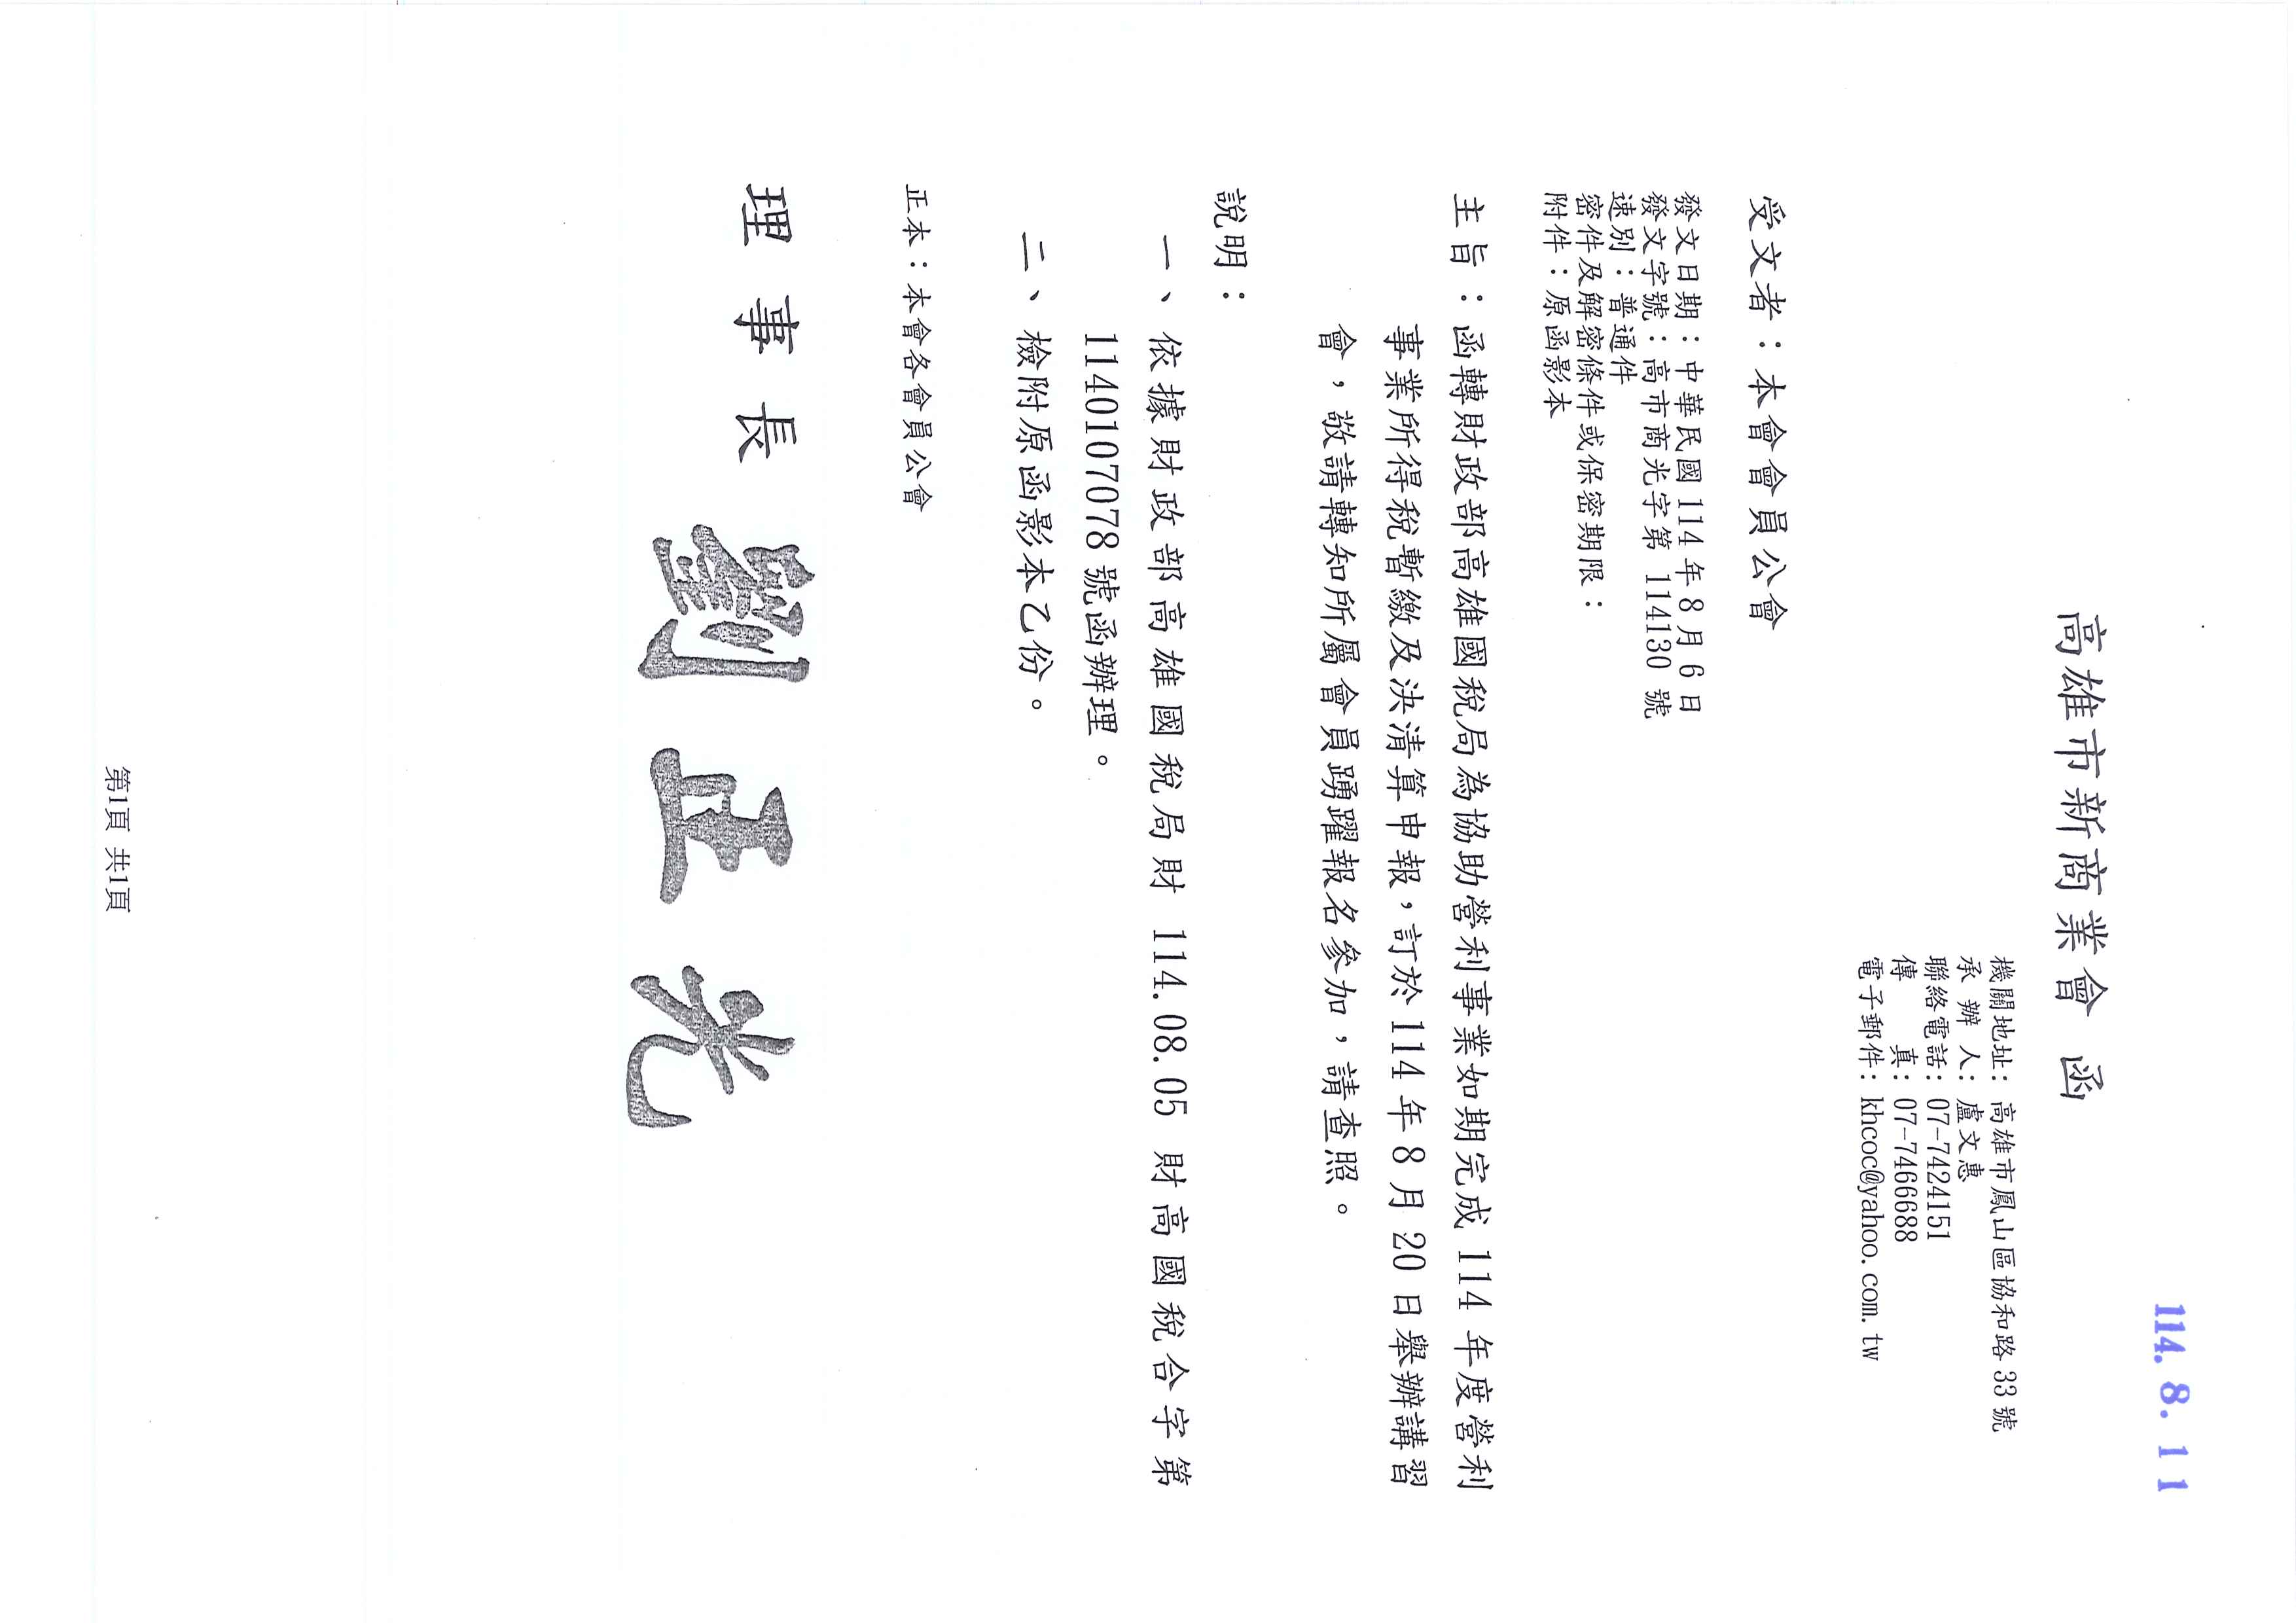 114. 8. 11
高雄市新商業會 函
機關地址：高雄市鳳山區協和路 33 號
承 辦 人：盧文惠
聯絡電話：07-7424151
傳 真：07-7466688
電子郵件：khcoc@yahoo.com.tw
受文者：本會會員公會
發文日期：中華民國 114 年 8 月 6 日
發文字號：高市商光字第 114130 號
速別：普通件
密件及解密條件或保密期限：
附件：原函影本
主旨：函轉財政部高雄國稅局為協助營利事業如期完成 114 年度營利
事業所得稅暫繳及決清算申報，訂於 114 年 8 月 20 日舉辦講習
會，敬請轉知所屬會員踴躍報名參加，請查照。
說明：
一、依據財政部高雄國稅局財 114.08.05 財高國稅合字第
1140107078 號函辦理。
二、檢附原函影本乙份。
正本：本會各會員公會
理 事 長 劉 正 光
第1頁 共1頁